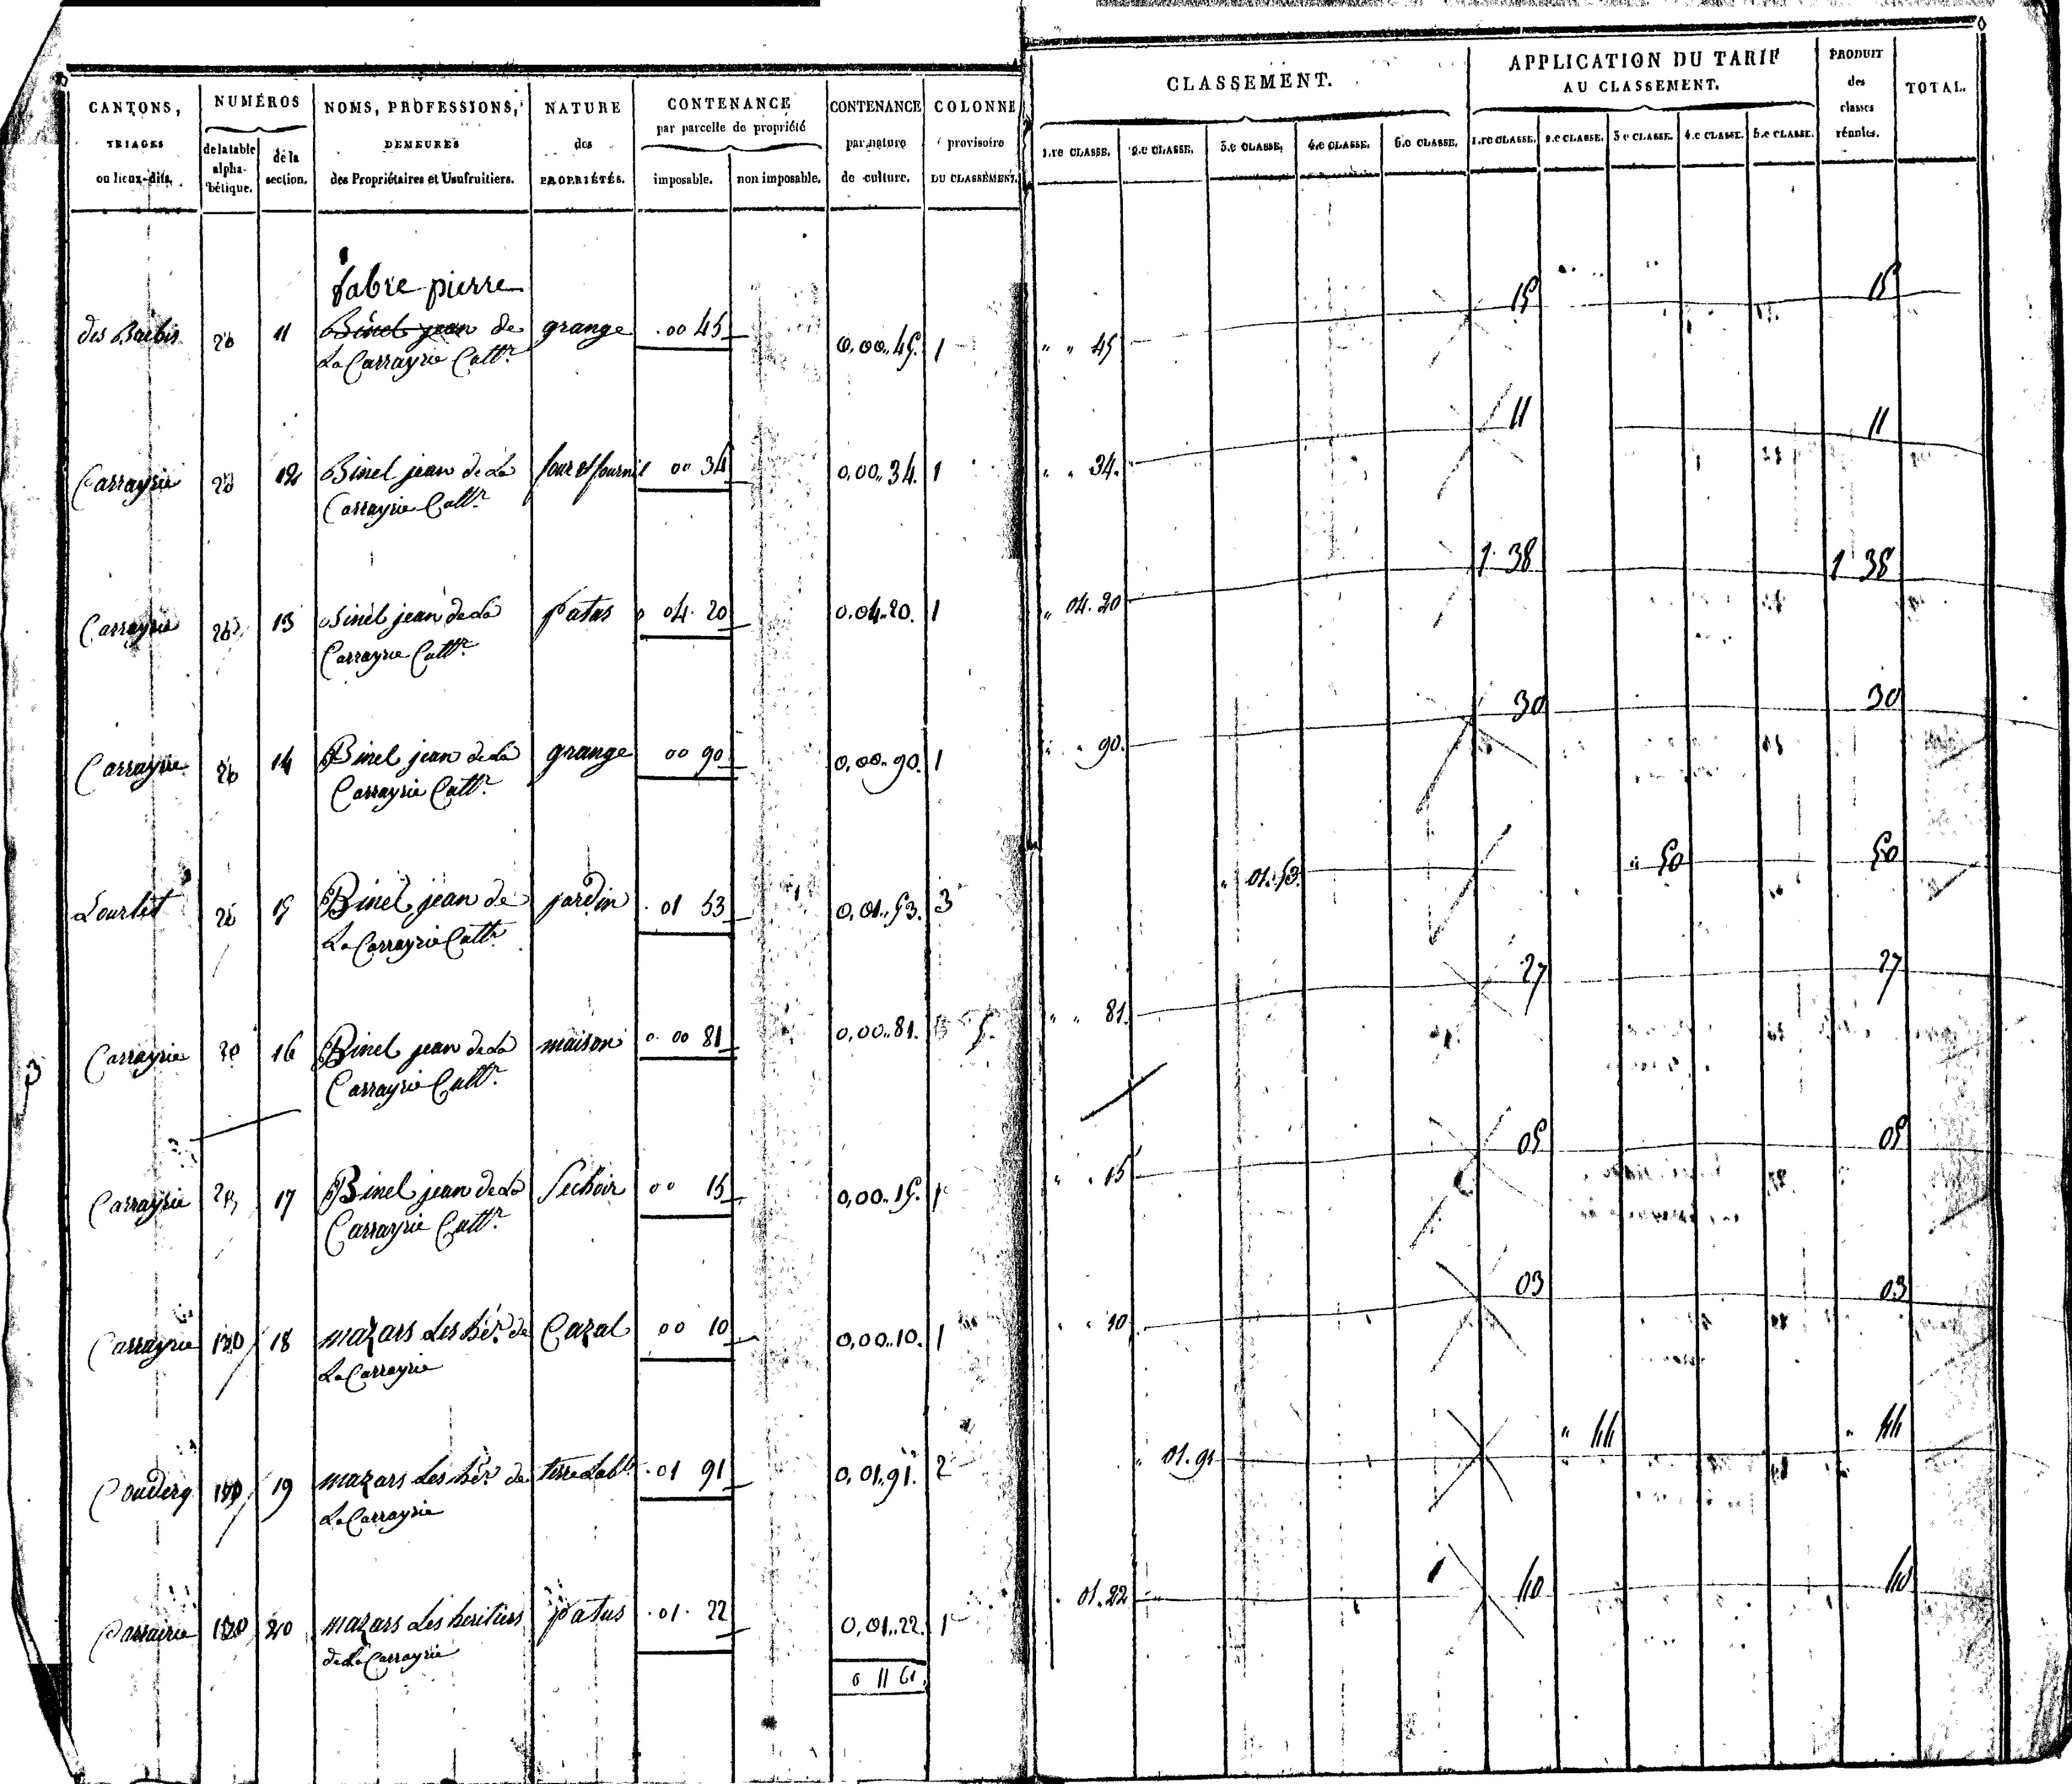 CANTONS, TRIAGES ou lieux-dits. | NUMÉROS de la table alphabétique. | de la section. | NOMS, PROFESSIONS, DEMEURES des Propriétaires et Usufruitiers. | NATURE des PROPRIÉTÉS. | CONTENANCE par parcelle de propriété imposable. | non imposable. | CONTENANCE par nature de culture. | COLONNE provisoire DU CLASSEMENT. | CLASSEMENT. 1.re CLASSE. | 2.e CLASSE. | 3.e CLASSE. | 4.e CLASSE. | 5.e CLASSE. | APPLICATION DU TARIF AU CLASSEMENT. 1.re CLASSE. | 2.e CLASSE. | 3.e CLASSE. | 4.e CLASSE. | 5.e CLASSE. | PRODUIT des classes réunies. | TOTAL.
fabre pierre
des Barbis 11 Binel jean de grange 00 45 0,00..45. 1 " " 45 15 15
La Carrayrie Catt.r
Carrayrie 12 Binel jean de La four et fournil 00 34 0,00..34. 1 " " 34. 11 11
Carrayrie Catt.r
Carrayrie 13 Binel jean de La patus 04. 20 0.04..20. 1 " 04.20 1. 38 1 38
Carrayrie Catt.r
Carrayrie 14 Binel jean de La grange 00 90 0,00..90. 1 " " 90. 30 30
Carrayrie Catt.r
Lourtet 15 Binel jean de jardin 01 53 0,01..53. 3 " 01.53. " 50 50
La Carrayrie Catt.r
Carrayrie 16 Binel jean de La maison 0. 00 81 0,00..81. " " 81. 27 27
Carrayrie Catt.r
3
Carrayrie 17 Binel jean de La Sechoir 00 15 0,00..15. 1 " " 15 05 05
Carrayrie Catt.r
Carrayrie 18 mazars Les hér. de Cazal 00 10 0,00..10. 1 " " 10 03 03
La Carrayrie
Couderq 19 mazars Les hér. de terre Lab.le 01 91 0,01..91. 2 " 01.91 " 44 " 44
La Carrayrie
Carrairie 20 mazars Les heritiers patus 01. 22 0,01..22. 1 01.22 40 40
de La Carrayrie
0 11 61